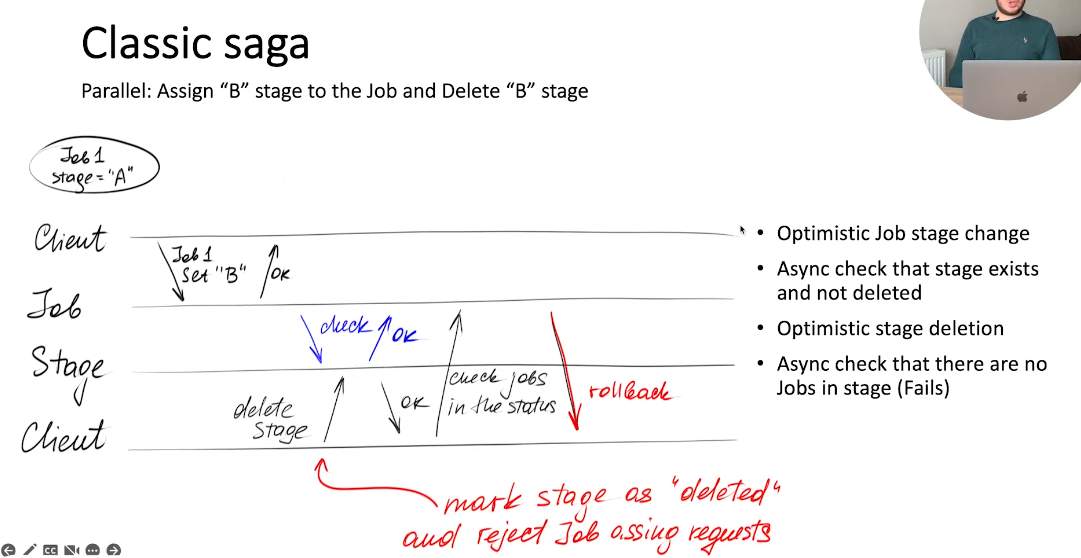 Classic saga
Parallel: Assign “B” stage to the Job and Delete “B” stage
Job 1
stage="A"
Client
Job 1
Set "B"
OK
Job
check
OK
Stage
delete
stage
OK
check jobs
in the status
rollback
Client
mark stage as "deleted"
and reject Job assing requests
• Optimistic Job stage change
• Async check that stage exists
and not deleted
• Optimistic stage deletion
• Async check that there are no
Jobs in stage (Fails)
CC